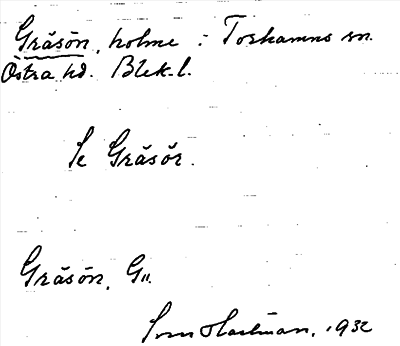 Gräsön, holme i Torhamns sn.
Östra hd. Blek. l.
Se Gräsör.
Gräsön, G11.
Sven Hartman, 1932